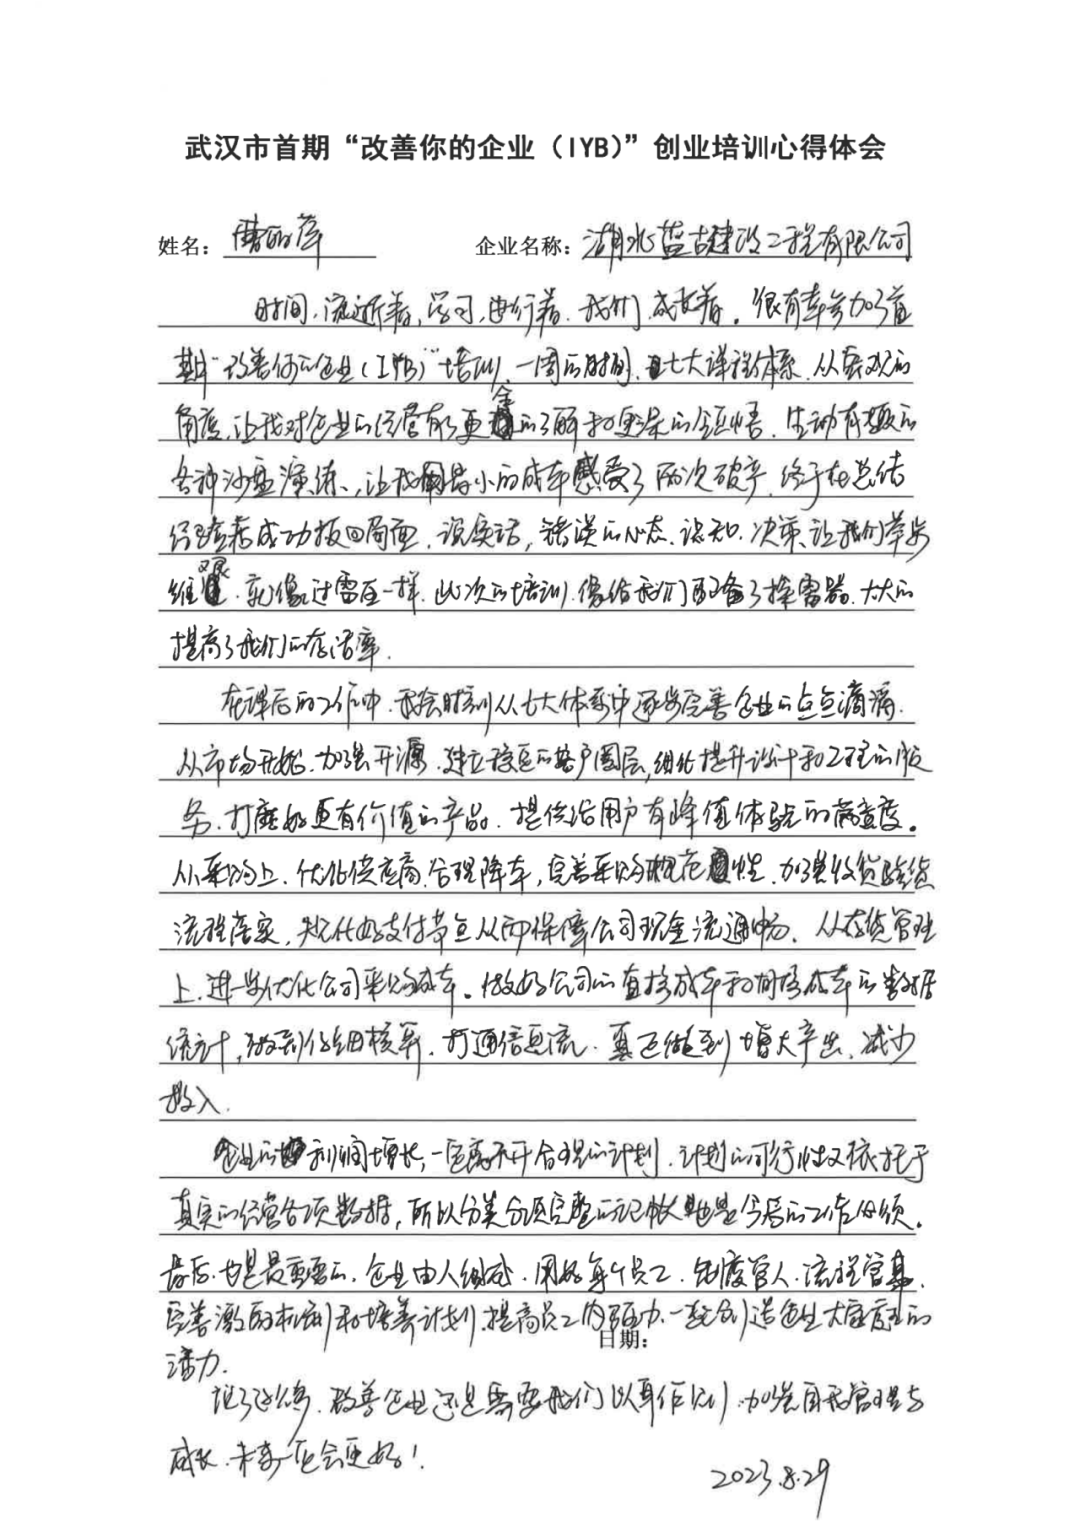 武汉市首期“改善你的企业（IYB）”创业培训心得体会
姓名：曹丽萍 企业名称：湖北蓝古建设工程有限公司
时间，流逝着，学习，由行着，我们，成长着。很有幸参加了首
期“改善你的企业（IYB）”培训，一周的时间，七大课程体系，从客观的
角度，让我对企业的经营有了更全的了解和更深的领悟，生动有趣的
各种沙盘演练，让我用最小的成本感受了两次破产，终于在总结
经验后成功扳回局面，说实话，错误的心态、认知、决策，让我们举步
维艰，就像过雷区一样，此次的培训，像给我们配备了探雷器，大大的
提高了我们的存活率。
在课后的工作中，我会时刻从七大体系中逐步完善企业的点点滴滴，
从市场开始，加强开源，建立稳定的客户圈层，细化提升设计和工程的服
务，打磨好更有价值的产品，提供给用户有峰值体验的满意度。
从采购上，优化供应商，合理降本，完善采购规范性，加强收货验货
流程落实，优化好支付节点从而保障公司现金流通畅，从存货管理
上，进一步优化公司采购成本。做好公司的直接成本和间接成本的数据
统计，做到仔细核算，打通信息流，真正做到增大产出，减少
投入。
企业的利润增长，一定离不开合理的计划，计划的可行性又依托于
真实的经营各项数据，所以分类分项完整的记账也是今后的工作必须。
最后，也是最重要的，企业由人组成，用好每个员工，制度管人，流程管事，
完善激励机制和培养计划，提高员工内驱力，一起创造企业大家庭的
日期：
活力。
说了这么多，改善企业还是需要我们以身作则，加强自我管理与
成长，未来一定会更好！
2023.8.29